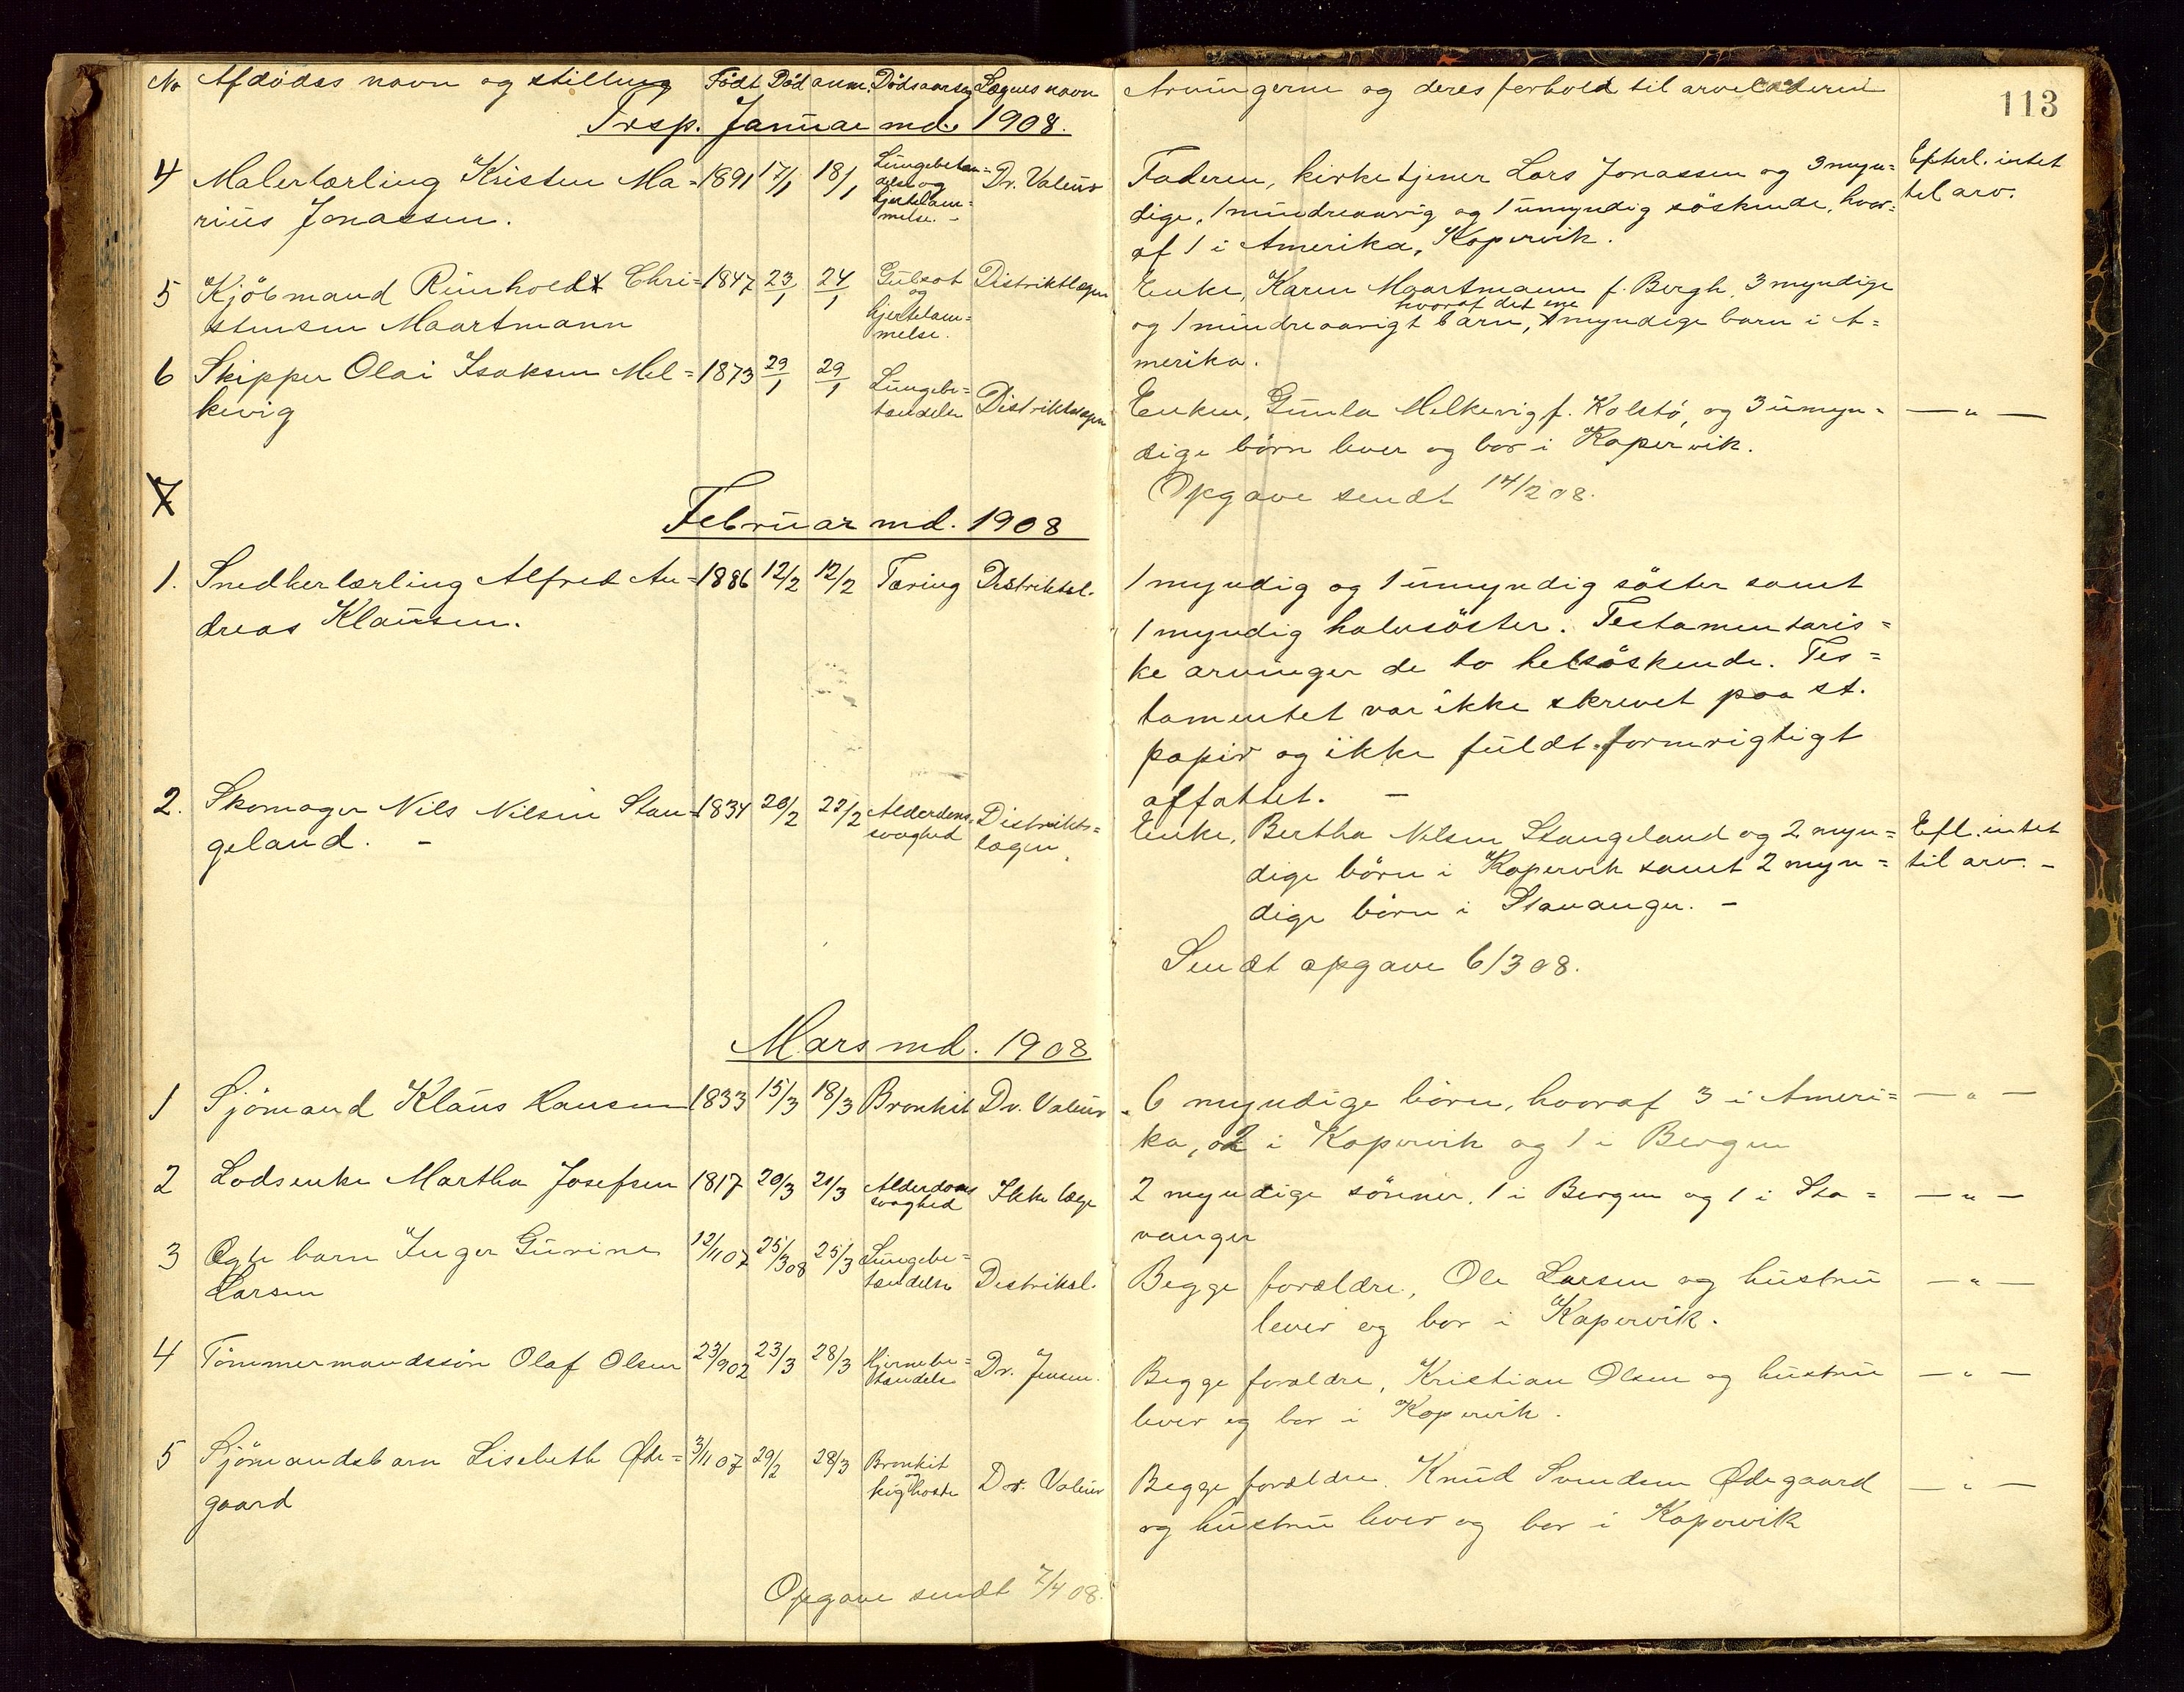 No Afdödes navn og stilling Födt Död anm. Dödsaarsag Lægens navn Arvingerne og deres forhold til arveladeren
113
Trsp. Januar md. 1908.
4 Malerlærling Kristen Ma= 1891 17/1 18/1 Lungebetæn=delse og hjertelam=melse. - Dr. Valeur Faderen, kirketjener Lars Jonassen og 3 myn= Efterl. intet
rius Jonassen. dige, 1 mindreaarig og 1 umyndig söskende, hvor= til arv.
af 1 i Amerika, Kopervik.
5 Kjöbmand Reinholdt Chri= 1847 23/1 24/1 Gulsot og hjertelam=melse. Distriktlægen Enke, Karen Maartmann f. Bergh, 3 myndige
stensen Maartmann og 1 mindreaarigt barn, hvoraf det ene myndige barn i A=
merika.
6 Skipper Olai Isaksen Mel= 1873 29/1 29/1 Lungebe=tændelse Distriktslægen Enken, Gunla Melkevig f. Kolstö, og 3 umyn= — " —
kevig dige börn lever og bor i Kopervik.
7 Opgave sendt 14/2 08.
Februar md. 1908
1. Snedkerlærling Alfred An= 1886 12/2 12/2 Tæring Distriktsl. 1 myndig og 1 umyndig söster samt
dreas Klausen. 1 myndig halvsöster. Testamentaris=
ke arvinger de to helsöskende. Tes=
tamentet var ikke skrevet paa st.
papir og ikke fuldt formrigtigt
affattet. -
2. Skomager Nils Nilsen Stan= 1834 20/2 22/2 Alderdoms svaghed Distrikts=lægen. Enke, Bertha Nilsen Stangeland og 2 myn= Efl. intet
geland. - dige börn i Kopervik samt 2 myn= til arv. -
dige börn i Stavanger. -
Sendt opgave 6/3 08.
Mars md. 1908
1 Sjömand Klaus Hansen 1833 15/3 18/3 Bronkit Dr. Valeur 6 myndige börn, hvoraf 3 i Ameri= — " —
ka, 2 i Kopervik og 1 i Bergen
2 Lodsenke Martha Josefsen 1817 20/3 21/3 Alderdoms svaghed Ikke læge 2 myndige sönner, 1 i Bergen og 1 i Sta= — " —
vanger
3 Ægte barn Inger Gurine 12/11 07 25/3 08 25/3 Lungebe=tændelse Distriksl. Begge forældre, Ole Larsen og hustru — " —
Larsen lever og bor i Kopervik.
4 Tömmermandssön Olaf Olsen 23/9 02 23/3 28/3 Hjernebe=tændelse Dr. Jensen. Begge forældre, Kristian Olsen og hustru — " —
lever og bor i Kopervik.
5 Sjömandsbarn Lisebeth Öde= 3/11 07 29/2 28/3 Bronkit kighoste Dr. Valeur Begge forældre, Knud Svendsen Ödegaard — " —
gaard og hustru lever og bor i Kopervik
Opgave sendt 7/4 08.